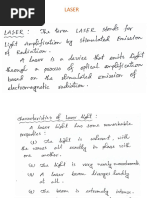 LASER
LASER : The term LASER stands for
Light Amplification by Stimulated Emission
of Radiation.
A laser is a device that emits light
through a process of optical amplification
based on the stimulated emission of
electromagnetic radiation.
Characteristics of laser light:
A laser light has some remarkable
properties:
(1) The light is coherent, with
the waves all exactly in phase with
one another.
(2) The light is very nearly monochromatic
(3) A laser beam diverges hardly
at all.
(4) The beam is extremely intense.